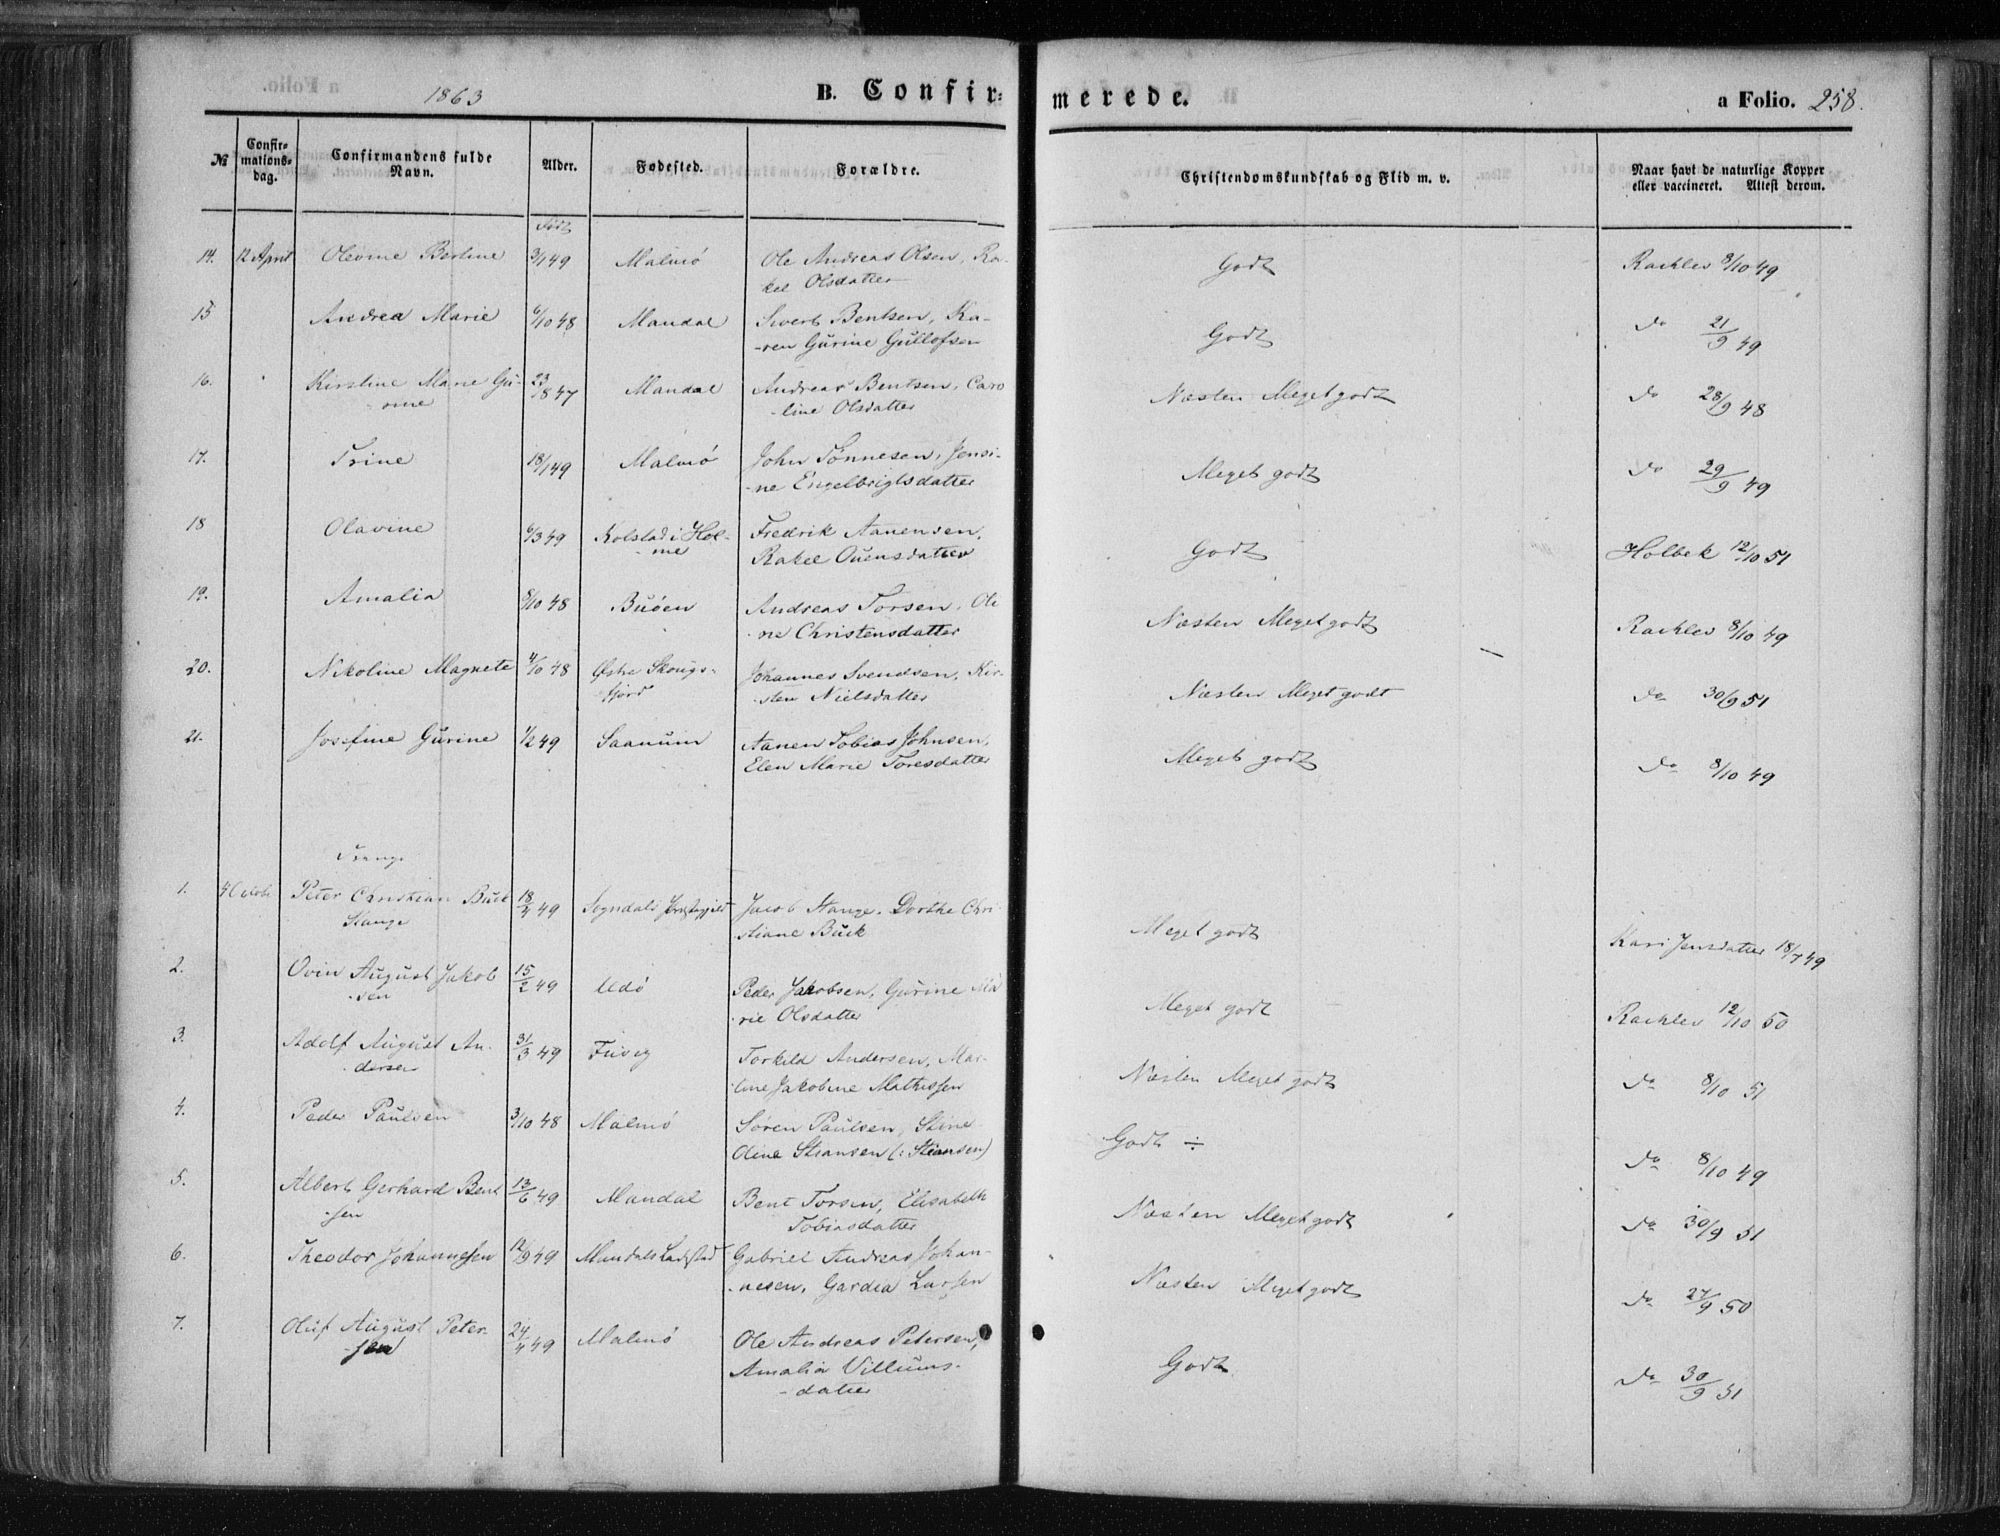 1863 B. Confir- merede. a Folio. 258.
№ Confir-mations-dag. Confirmandens fulde Navn. Alder. Fødested. Forældre. Christendomskundskab og Flid m. v. Naar havt de naturlige Kopper eller vaccineret. Attest derom.
Født
14. 12 April Olevine Bertine 3/1 49 Malmö Ole Andreas Olsen, Ra- Godt Rachlev 8/10 49
kel Olsdatter
15 Andrea Marie 6/10 48 Mandal Sivert Bentsen, Ka- Godt do 21/9 49
-ren Gurine Gullofsen
16. Kirstine Marie Gu- 23/8 47 Mandal Andreas Bentsen, Caro Næsten Meget godt do 28/9 48
-rine -line Olsdatter
17. Trine 18/1 49 Malmö John Tönnesen, Jensi- Meget godt do 29/9 49
-ne Engelbrigtsdatter
18 Olavine 6/3 49 Kolstad i Hol- Fredrik Aanensen, Godt Holbek 12/10 51
-me Rakel Ouensdatter
19. Amalia 8/10 48 Buöen Andreas Torsen, Ole Næsten Meget godt Rachlev 8/10 49
-ne Christensdatter
20. Nikoline Magnete 4/10 48 Østre Skougs- Johannes Svendsen, Kir- Næsten Meget godt do 30/9 51
-fjord -sten Nielsdatter
21. Josefine Gurine 1/2 49 Saanum Aanen Tobias Johnsen, Meget godt do 8/10 49
Elen Marie Toresdatter
1. 4 Octobr Peter Christian Buck 18/4 49 Sogndals Præstegjeld Jacob Stange, Dorthe Chri- Meget godt Kari Jensdatter 18/7 49
Stange -stiane Buck
2. Ovin August Jakob 15/2 49 Udö Peder Jakobsen, Gurine Ma Meget godt Rachlev 12/10 50
-sen -rie Olsdatter
3. Adolf August An- 31/3 49 Fuvig Torkild Andersen, Mar- Næsten Meget godt do 8/10 51
-dersen -tine Jakobine Mathissen
4. Peder Paulsen 3/10 48 Malmö Sören Paulsen, Stine Godt ÷ do 8/10 49
Oline Stiansen (: Stiansen)
5. Albert Gerhard Bent 13/6 49 Mandal Bent Torsen, Elisabeth Næsten Meget godt do 30/9 51
-sen Tobiasdatter
6. Theodor Johannesen 12/9 49 Mandals Ladested Gabriel Andreas Johan- Næsten Meget godt do 27/9 50
-nesen, Gardea Larsen
7. Oluf August Peter 24/4 49 Malmö Ole Andreas Petersen, Godt do 30/9 51
-sen Amalia Villums-
-datter